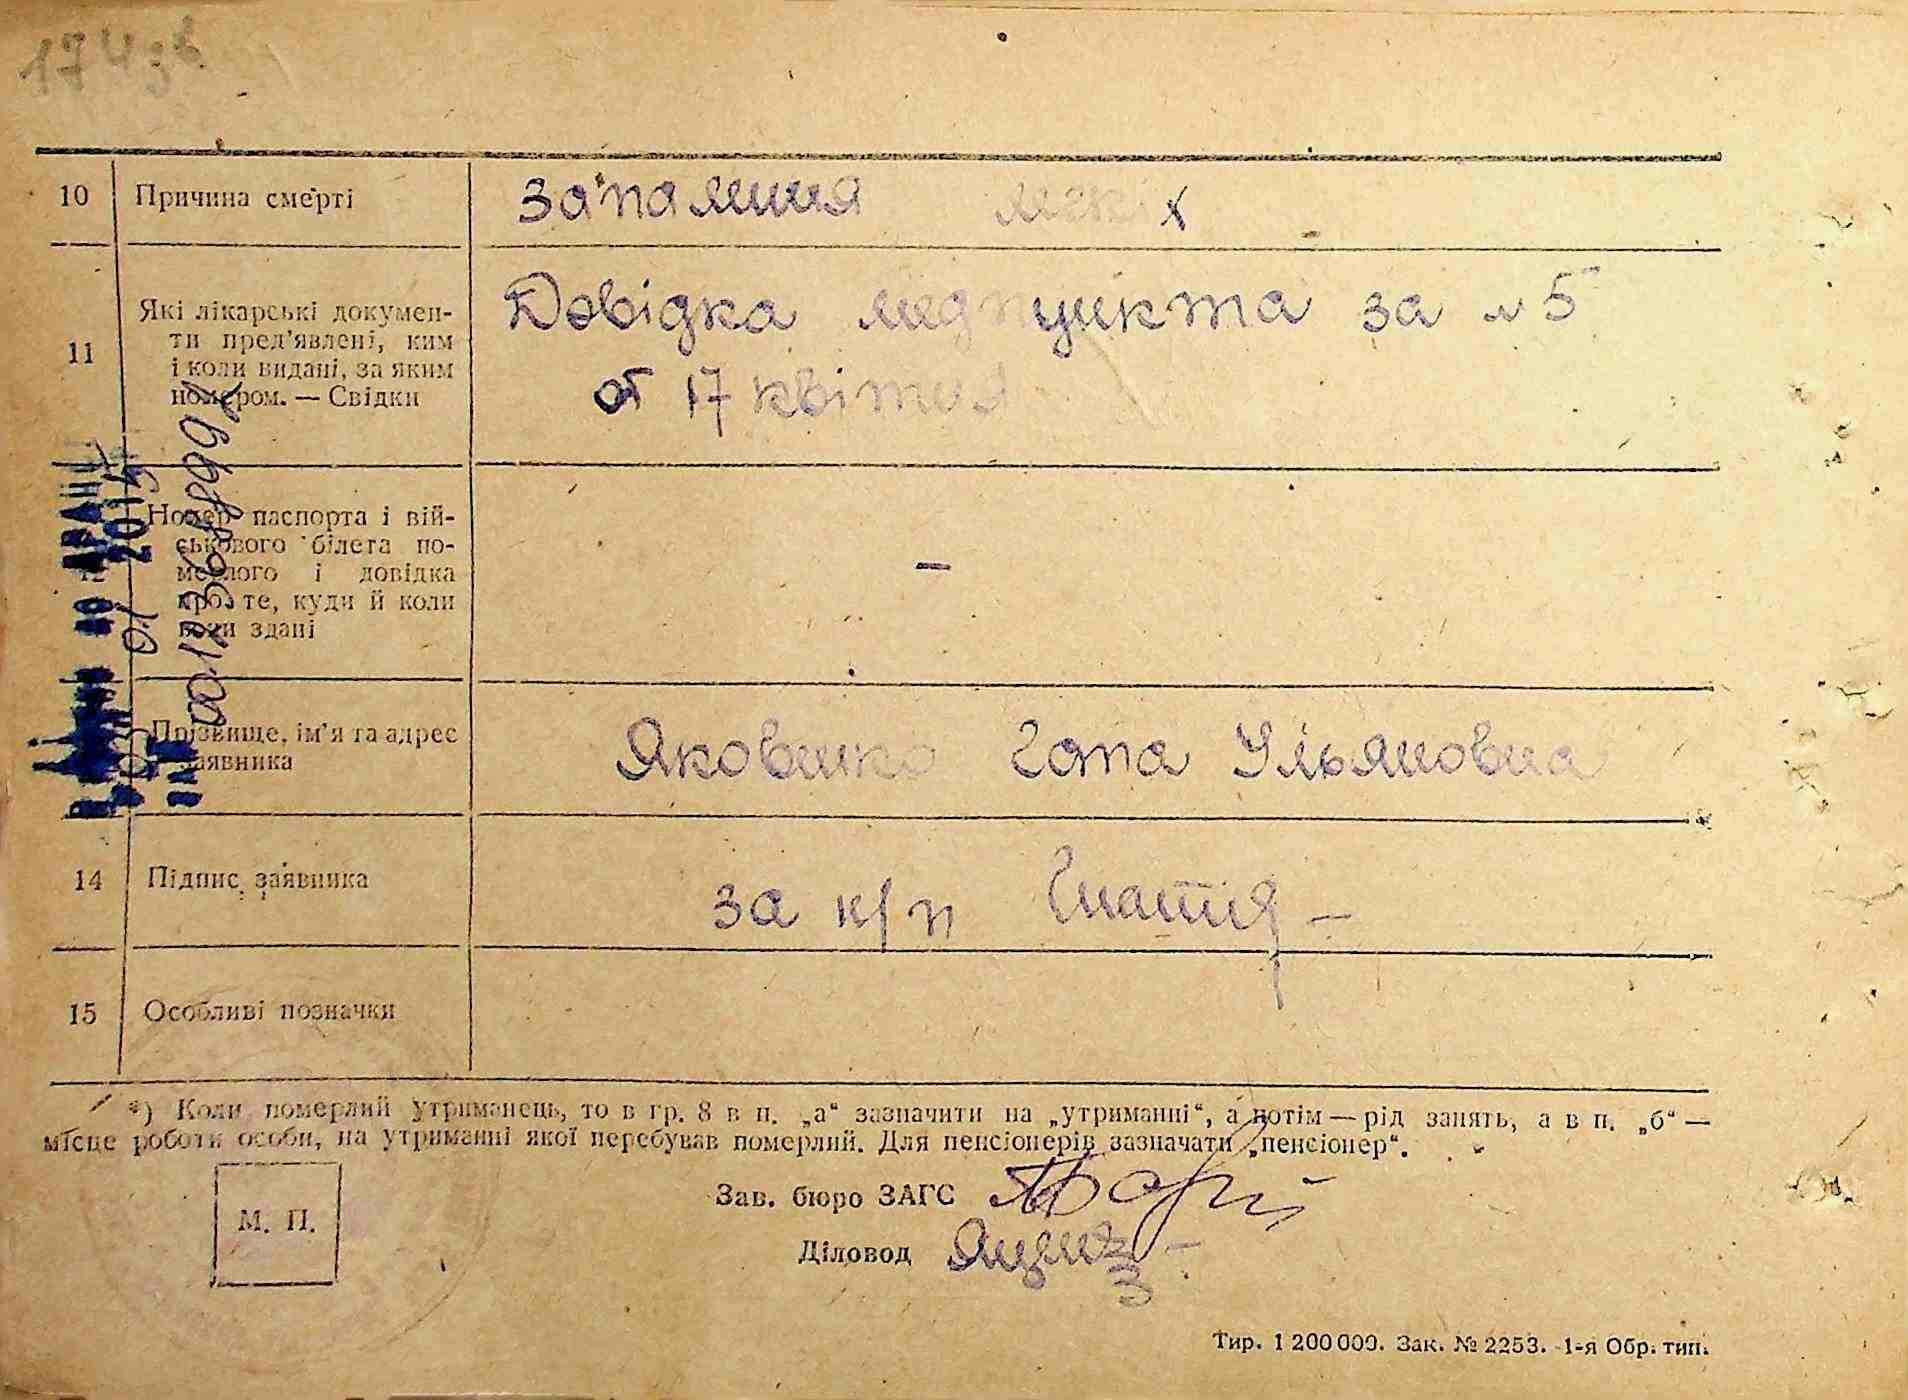 174
10 Причина смерті Запалиння легких
11 Які лікарські докумен-
ти пред'явлені, ким
і коли видані, за яким
номером. — Свідки
Довідка медпункта за № 5
от 17 квітня
12 Номер паспорта і вій-
ськового білета по-
мерлого і довідка
про те, куди й коли
вони здані
–
Прізвище, ім'я та адрес
заявника
Яковенко Гапа Ульяновна
14 Підпис заявника за н/п Гнатів
15 Особливі позначки
*) Коли померлий утриманець, то в гр. 8 в п. „а“ зазначити на „утриманні“, а потім — рід занять, а в п. „б“ —
місце роботи особи, на утриманні якої перебував померлий. Для пенсіонерів зазначати „пенсіонер“.
Зав. бюро ЗАГС
М. П.
Діловод
Тир. 1 200 000. Зак. № 2253. 1-я Обр. тип.